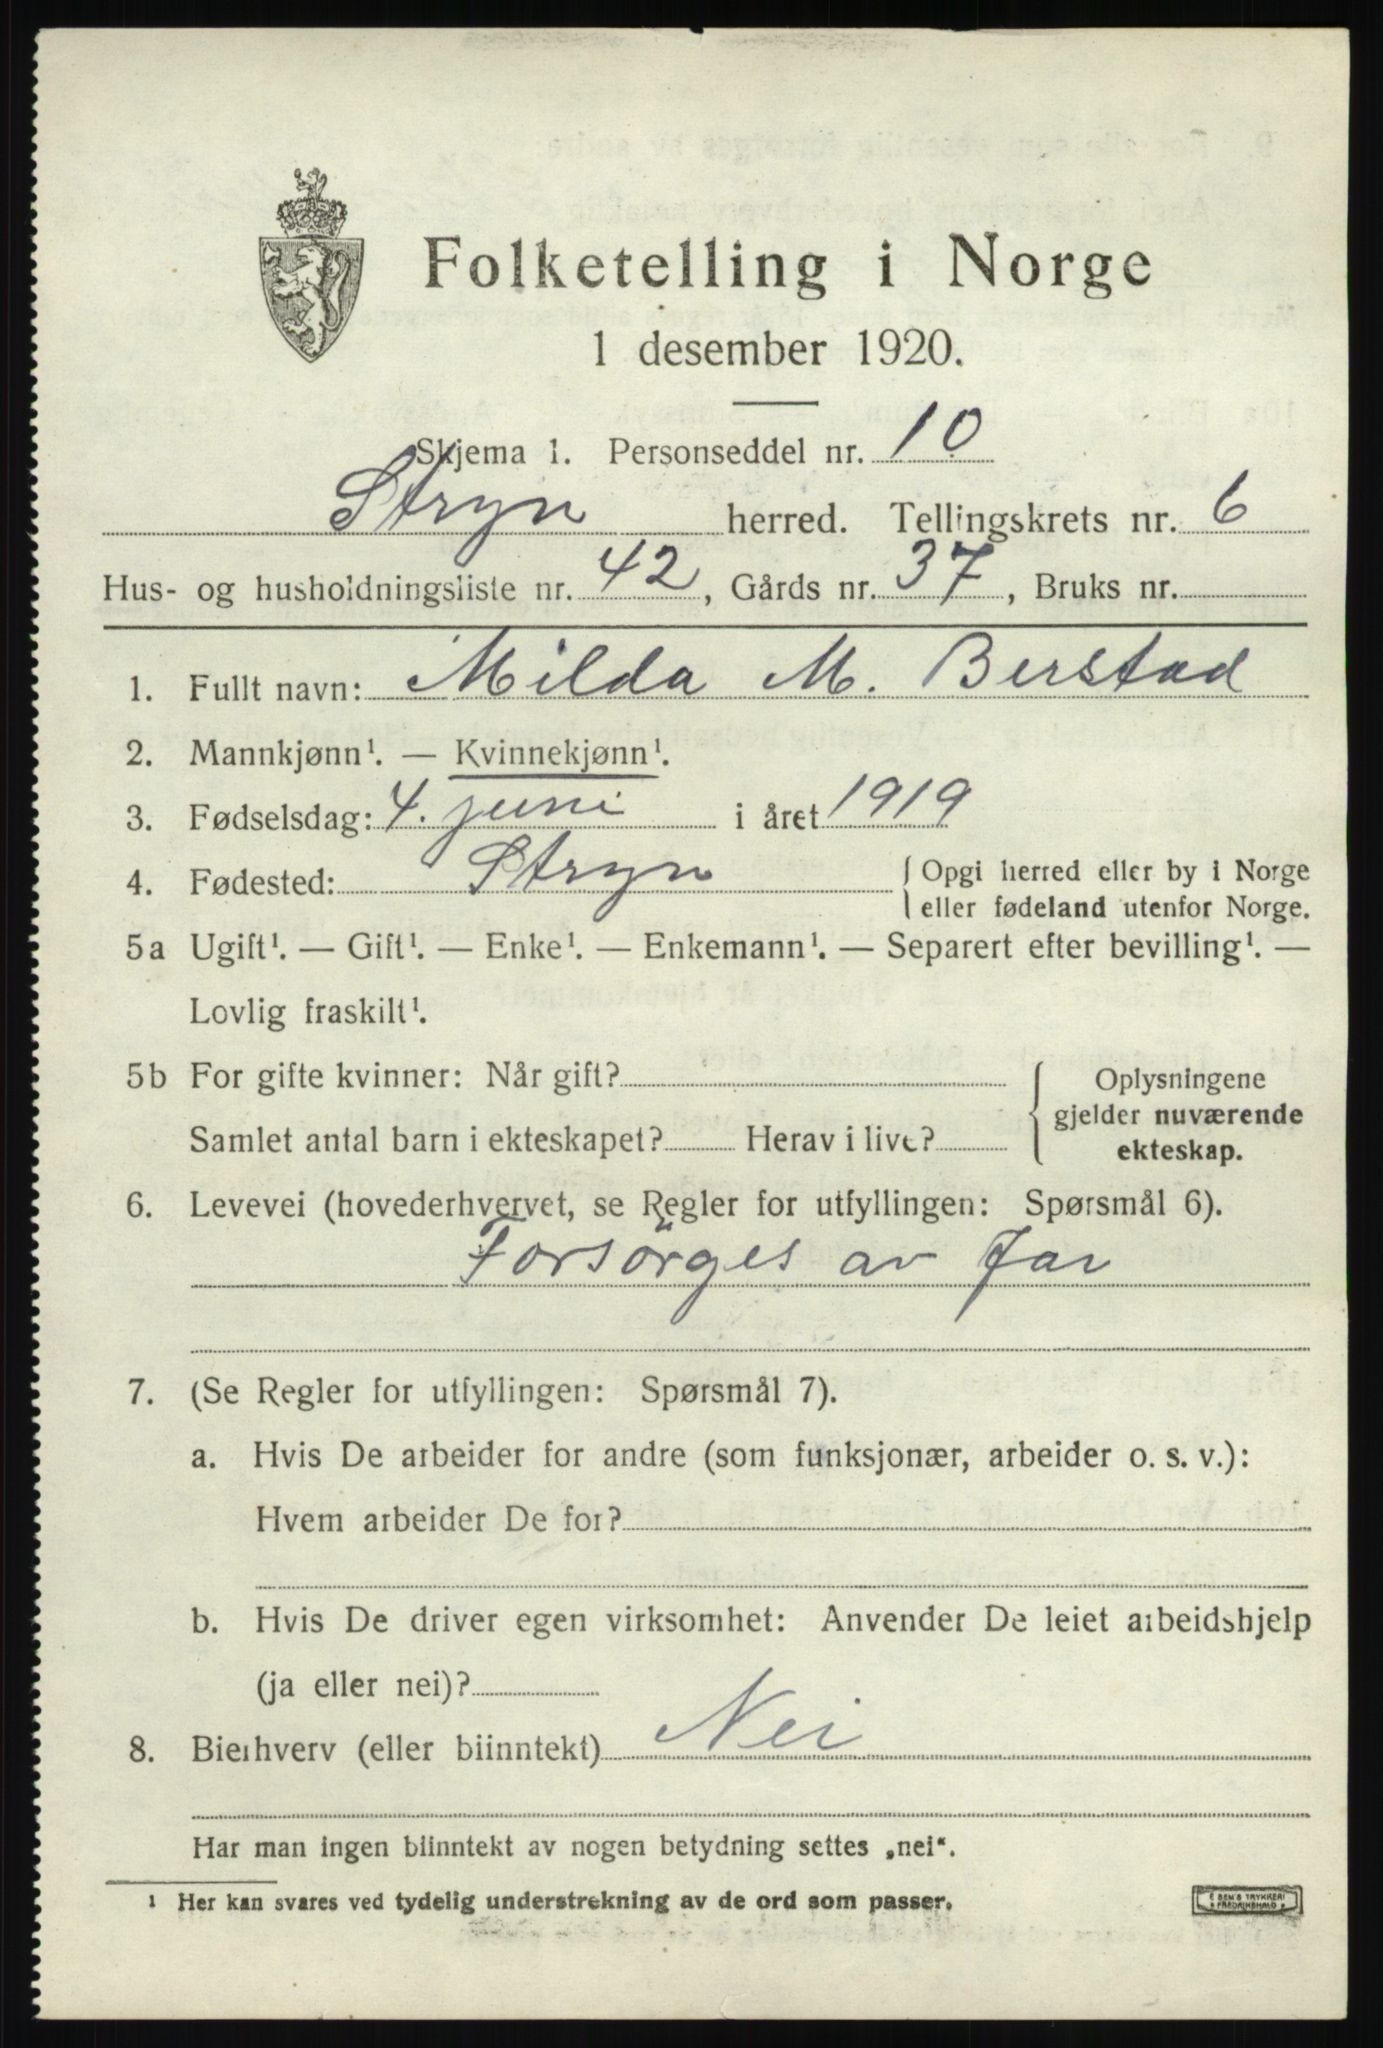 Folketelling i Norge
1 desember 1920.
Skjema 1. Personseddel nr. 10
Stryn herred. Tellingskrets nr. 6
Hus- og husholdningsliste nr. 42, Gårds nr. 37, Bruks nr.
1. Fullt navn: Milda M. Berstad
2. Mannkjønn¹. — Kvinnekjønn¹.
3. Fødselsdag: 4. juni i året 1919
4. Fødested: Stryn { Opgi herred eller by i Norge
eller fødeland utenfor Norge.
5a Ugift¹. — Gift¹. — Enke¹. — Enkemann¹. — Separert efter bevilling¹. —
Lovlig fraskilt¹.
5b For gifte kvinner: Når gift? { Oplysningene
gjelder nuværende
Samlet antal barn i ekteskapet? Herav i live? ekteskap.
6. Levevei (hovederhvervet, se Regler for utfyllingen: Spørsmål 6).
Forsörges av far
7. (Se Regler for utfyllingen: Spørsmål 7).
a. Hvis De arbeider for andre (som funksjonær, arbeider o. s. v.):
Hvem arbeider De for?
b. Hvis De driver egen virksomhet: Anvender De leiet arbeidshjelp
(ja eller nei)?
8. Bierhverv (eller biinntekt) Nei
Har man ingen biinntekt av nogen betydning settes „nei“.
¹ Her kan svares ved tydelig understrekning av de ord som passer.
E SEM'S TRYKKERI
FREDRIKSHALD